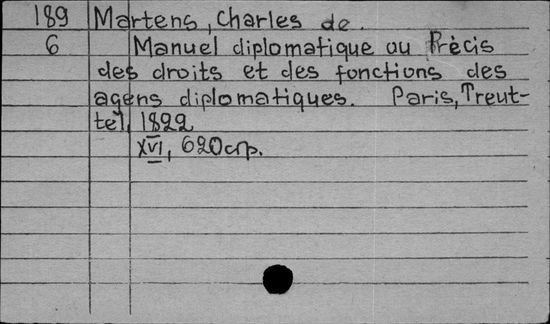 189 Martens, Charles de.
6 Manuel diplomatique ou Précis
des droits et des fonctions des
agens diplomatiques. Paris, Treut-
tel, 1822
XVI, 620 стр.